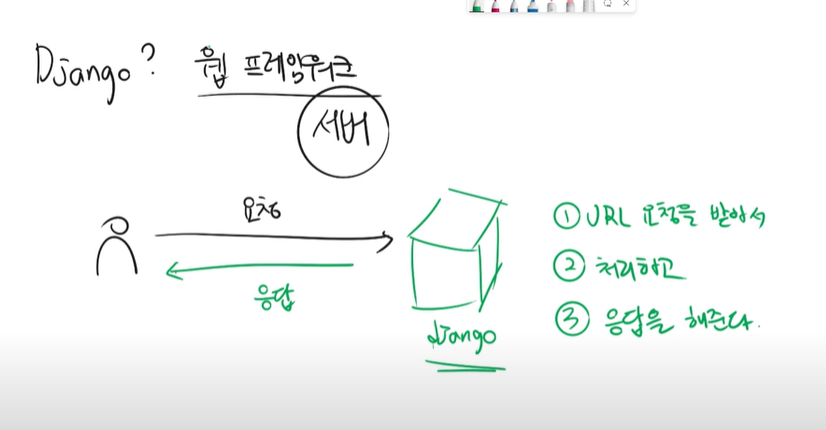 Django? 웹 프레임워크
서버
요청
응답
django
① URL 요청을 받아서
② 처리하고
③ 응답을 해준다.